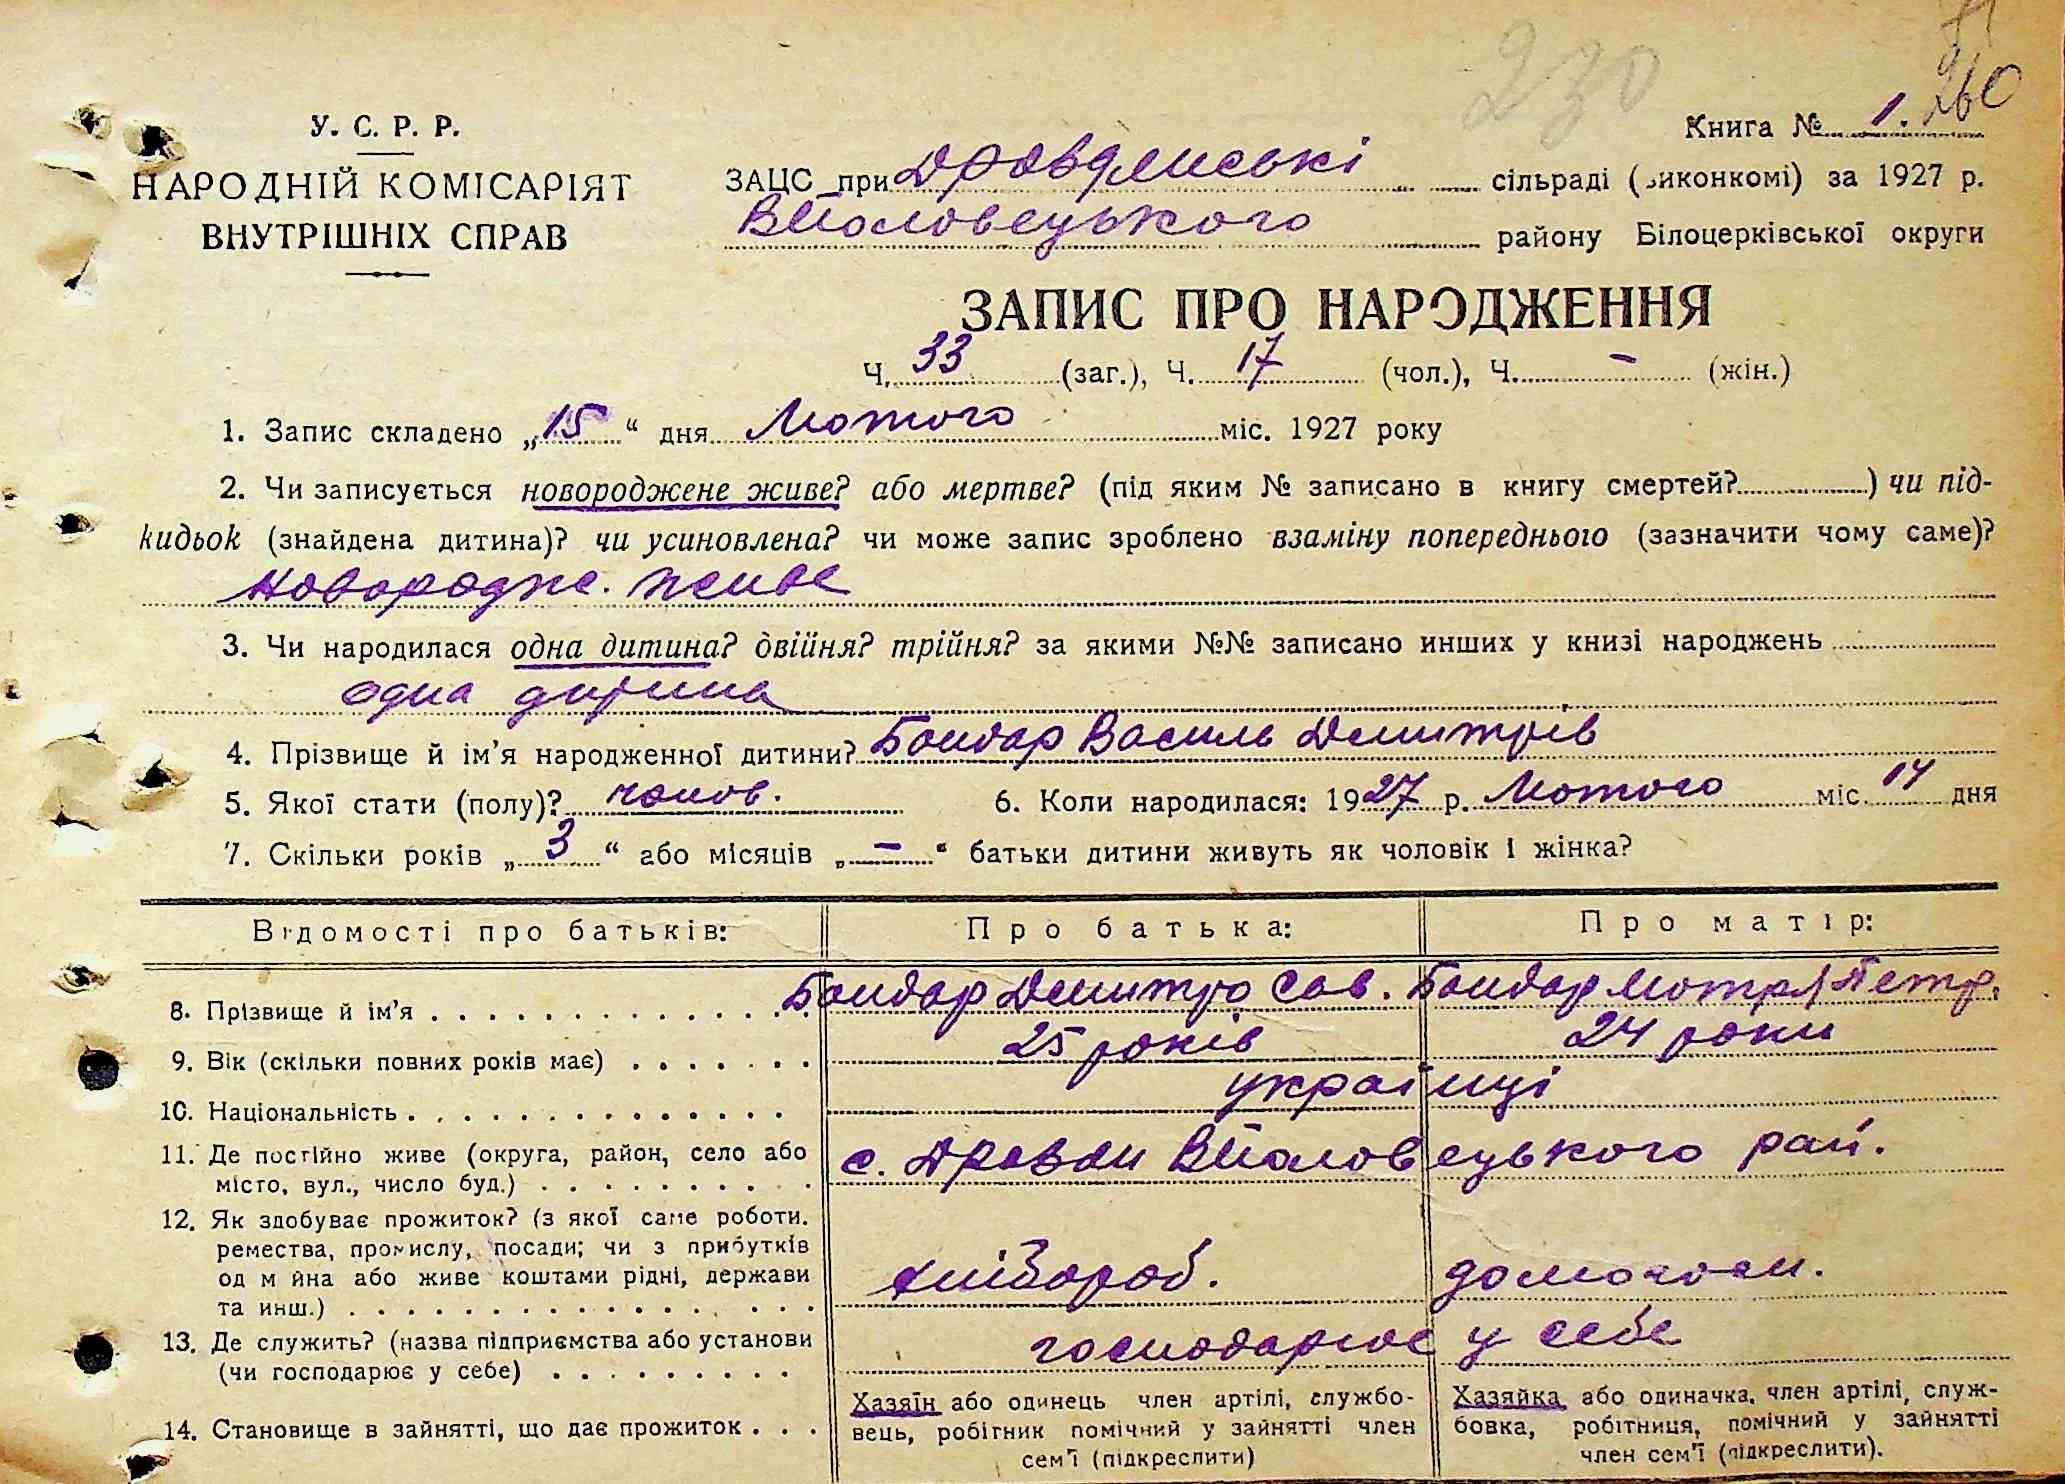 230
260
У. С. Р. Р.
НАРОДНІЙ КОМІСАРІЯТ
ВНУТРІШНІХ СПРАВ
Книга № 1.
ЗАЦС при сільраді (виконкомі) за 1927 р.
району Білоцерківської округи
ЗАПИС ПРО НАРОДЖЕННЯ
Ч. 33 (заг.), Ч. 17 (чол.), Ч. – (жін.)
1. Запис складено „15“ дня Лютого міс. 1927 року
2. Чи записується новороджене живе? або мертве? (під яким № записано в книгу смертей? ) чи під-
кидьок (знайдена дитина)? чи усиновлена? чи може запис зроблено взаміну попереднього (зазначити чому саме)?
Новородже. живе
3. Чи народилася одна дитина? двійня? трійня? за якими №№ записано инших у книзі народжень
одна дитина
4. Прізвище й ім'я народженної дитини? Бондар Василь Дмитрів
5. Якої стати (полу)? чолов. 6. Коли народилася: 1927 р. Лютого міс. 14 дня
7. Скільки років „3“ або місяців „–“ батьки дитини живуть як чоловік і жінка?
Відомості про батьків: Про батька: Про матір:
8. Прізвище й ім'я Бондар Дмитро Сав. Бондар Мотря Петр.
9. Вік (скільки повних років має) 25 років 24 роки
10. Національність українці
11. Де постійно живе (округа, район, село або
місто, вул., число буд.) с. рай.
12. Як здобуває прожиток? (з якої саме роботи.
ремества, промислу, посади; чи з прибутків
од м йна або живе коштами рідні, держави
та инш.) хлібороб. домогосп.
13. Де служить? (назва підприємства або установи
(чи господарює у себе) господарює у себе
14. Становище в зайнятті, що дає прожиток
Хазяїн або одинець член артілі, службо-
вець, робігник помічний у зайнятті член
сем'ї (підкреслити)
Хазяйка або одиначка, член артілі, служ-
бовка, робітниця, помічний у зайнятті
член сем'ї (підкреслити).